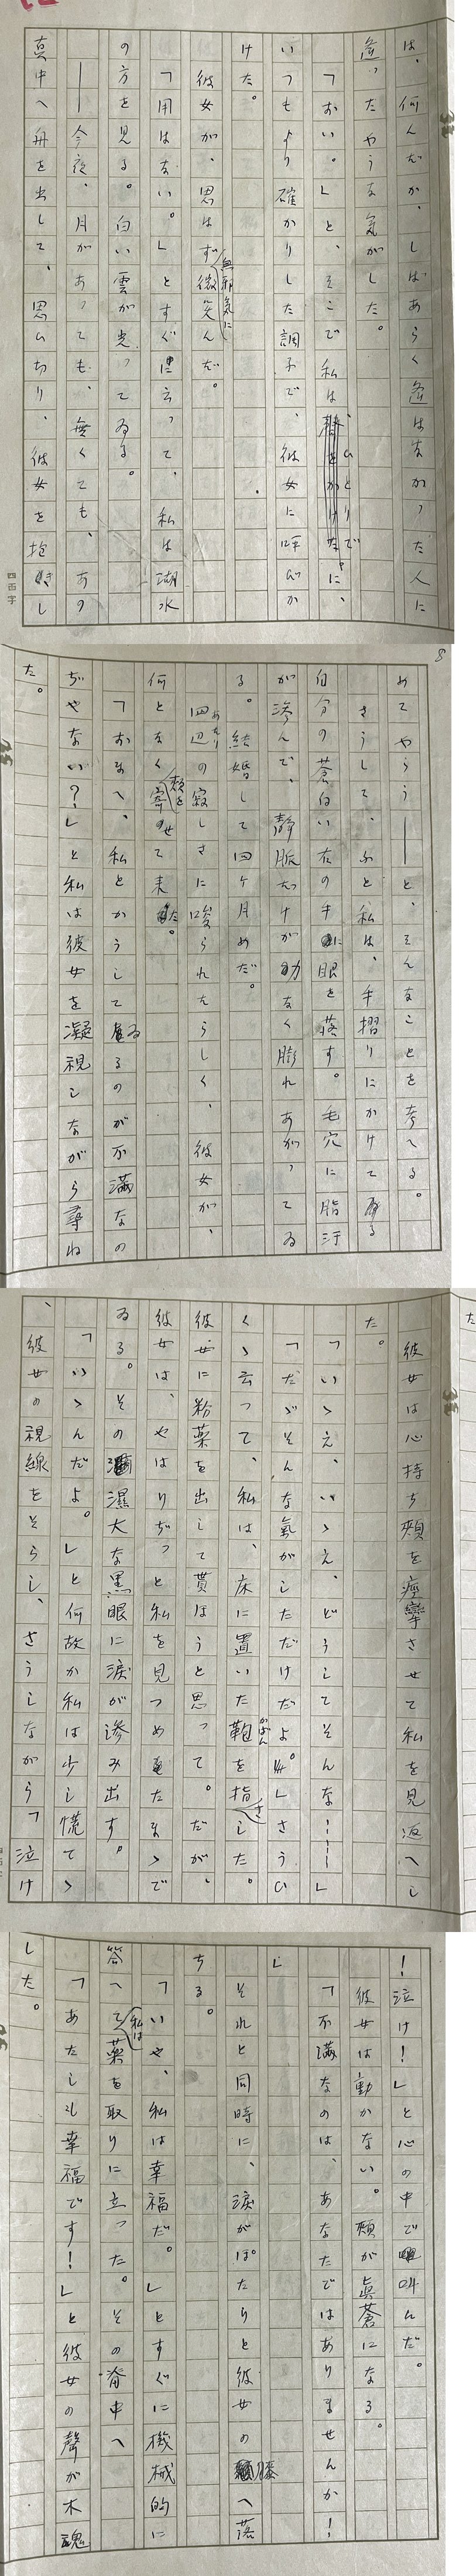 は、何んだか、しばあらく逢はなかった人に
逢ったやうな気がした。
「おい。」と、そこで私は、ひとりでに、
いつもより確かりした調子で、彼女に呼びか
けた。
彼女が、思はず無邪気に微笑んだ。
「用はない。」とすぐに云って、私は湖水
の方を見る。白い雲が光ってゐる。
――今夜、月があっても、無くても、あの
真中へ舟を出して、思ひ切り、彼女を抱きし
8
めてやらう――と、そんなことを考へる。
さうして、ふと私は、手摺りにかけてゐる
自分の蒼白い右の手に眼を落す。毛穴に脂汗
が滲んで、静脈だけが力なく膨れあがってゐ
る。結婚して四ヶ月めだ。
四辺の寂しさに唆られたらしく、彼女が、
あたり
何となく頬を寄せて来た。
「おまへ、私とかうしてゐるのが不満なの
ぢゃない?!」と私は彼女を凝視しながら尋ね
た。
彼女は心持ち頬を痙攣させて私を見返へし
た。
「いゝえ、いゝえ、どうしてそんな――」
「たゞそんな氣がしただけだよ。」さうひ
くゝ云って、私は、床に置いた鞄を指さした。
かばん
彼女に粉薬を出して貰はうと思って。だが、
彼女は、やはりぢっと私を見つめたまゝで
ゐる。その濕大な黒眼に涙が滲み出す。
「いゝんだよ。」と何故か私は少し慌てゝ
、彼女の視線をそらし、さうしながら「泣け
!泣け!」と心の中で叫んだ。
彼女は動かない。頬が眞蒼になる。
「不満なのは、あなたではありませんか!
」
それと同時に、涙がぽたりと彼女の膝へ落
ちる。
「いや、私は幸福だ。」とすぐに機械的に
答へて私は薬を取りに立った。その脊中へ
「あたしも幸福です!」と彼女の聲が木魂
した。
四百字